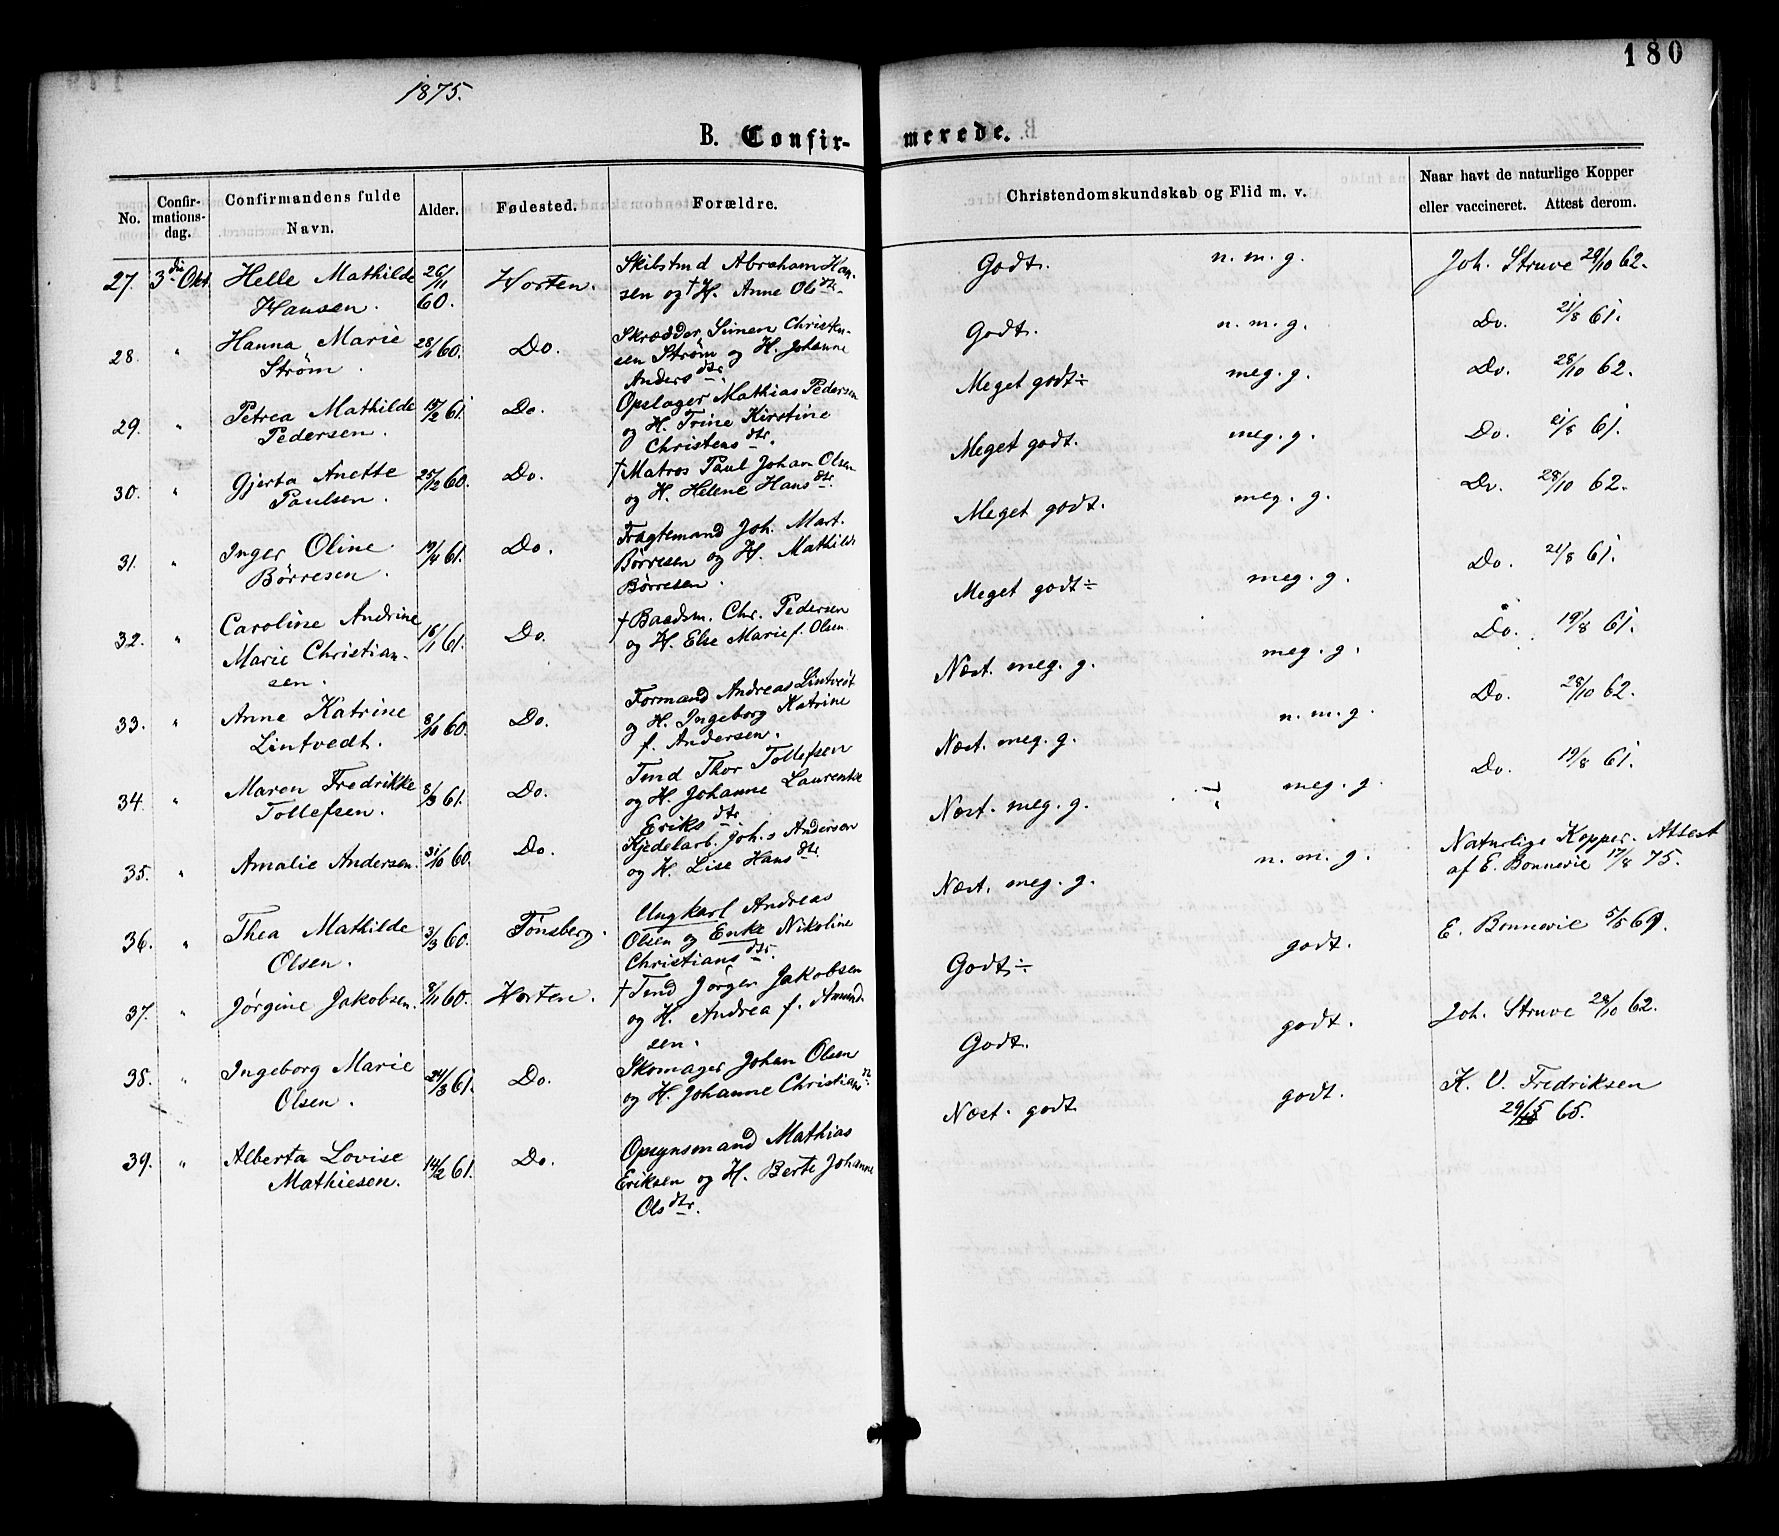 180
1875.
B. Confir- merede.
No.
Confir-
mations-
dag.
Confirmandens fulde
Navn.
Alder.
Fødested.
Forældre.
Christendomskundskab og Flid m. v.
Naar havt de naturlige Kopper
eller vaccineret. Attest derom.
27. 3die Okt. Helle Mathilde 26/11 Horten. Skibstmd Abraham Han- Godt. n. m. g. Joh. Struve 28/10 62.
Hansen. 60. sen og † H. Anne Olsdtr.
28. " Hanna Marie 28/11 60. Do. Skrædder Simen Christen- Godt. n. m. g. Do. 21/8 61.
Strøm. sen Strøm og H. Johanne
Andersdtr.
29. " Petrea Mathilde 15/2 61. Do. Opslager Mathias Pedersen Meget godt÷ meg. g. Do. 28/10 62.
Pedersen. og H. Trine Kirstine
Christensdtr.
30. " Gjerta Anette 25/12 60. Do. † Matros Paul Johan Olsen Meget godt. meg. g. Do. 21/8 61.
Paulsen. og H. Helene Hansdtr.
31. " Inger Oline 19/4 61. Do. Fragtemand Joh. Mart. Meget godt. meg. g. Do. 28/10 62.
Börresen. Börresen og H. Mathilde
Börresen.
32. " Caroline Andrine 16/1 61. Do. † Baadsm. Chr. Pedersen Meget godt÷ meg. g. Do. 21/8 61.
Marie Christian- og H. Else Marie f. Olsen
sen.
33. " Anne Katrine 8/10 60. Do. Formand Andreas Lintvedt Næst. meg. g. meg. g. Do. 19/8 61.
Lintvedt. og H. Ingeborg Katrine
f. Andersen.
34. " Maren Fredrikke 8/3 61. Do. Tmd Thor Tollefsen Næst. meg. g. n. m. g. Do. 28/10 62.
Tollefsen. og H. Johanne Laurentse
Eriksdtr.
35. " Amalie Andersen. 31/10 60. Do. Kjedelarb. Joh.s Andersen Næst. meg. g. meg. g. Do. 19/8 61.
og H. Lise Hansdtr.
36. " Thea Mathilde 3/3 60. Tønsberg. Ungkarl Andreas Næst. meg. g. n. m. g. Naturlige Kopper. Attest
Olsen. Olsen og Enke Nikoline af E. Bonnevie 17/8 75.
Christiansdtr.
37. " Jørgine Jakobsen. 9/11 60. Horten. † Tmd Jørgen Jakobsen Godt÷ godt. E. Bonnevie 5/8 69.
og H. Andrea f. Amund-
sen.
38. " Ingeborg Marie 24/3 61. Do. Skomager Johan Olsen Godt. godt. Joh. Struve 28/10 62.
Olsen. og H. Johanne Christians
39. " Alberta Lovise 14/2 61. Do. Opsynsmand Mathias Næst. godt godt. K. V. Fredriksen
Mathiesen. Eriksen og H. Berte Johanne 29/5 65.
Olsdtr.